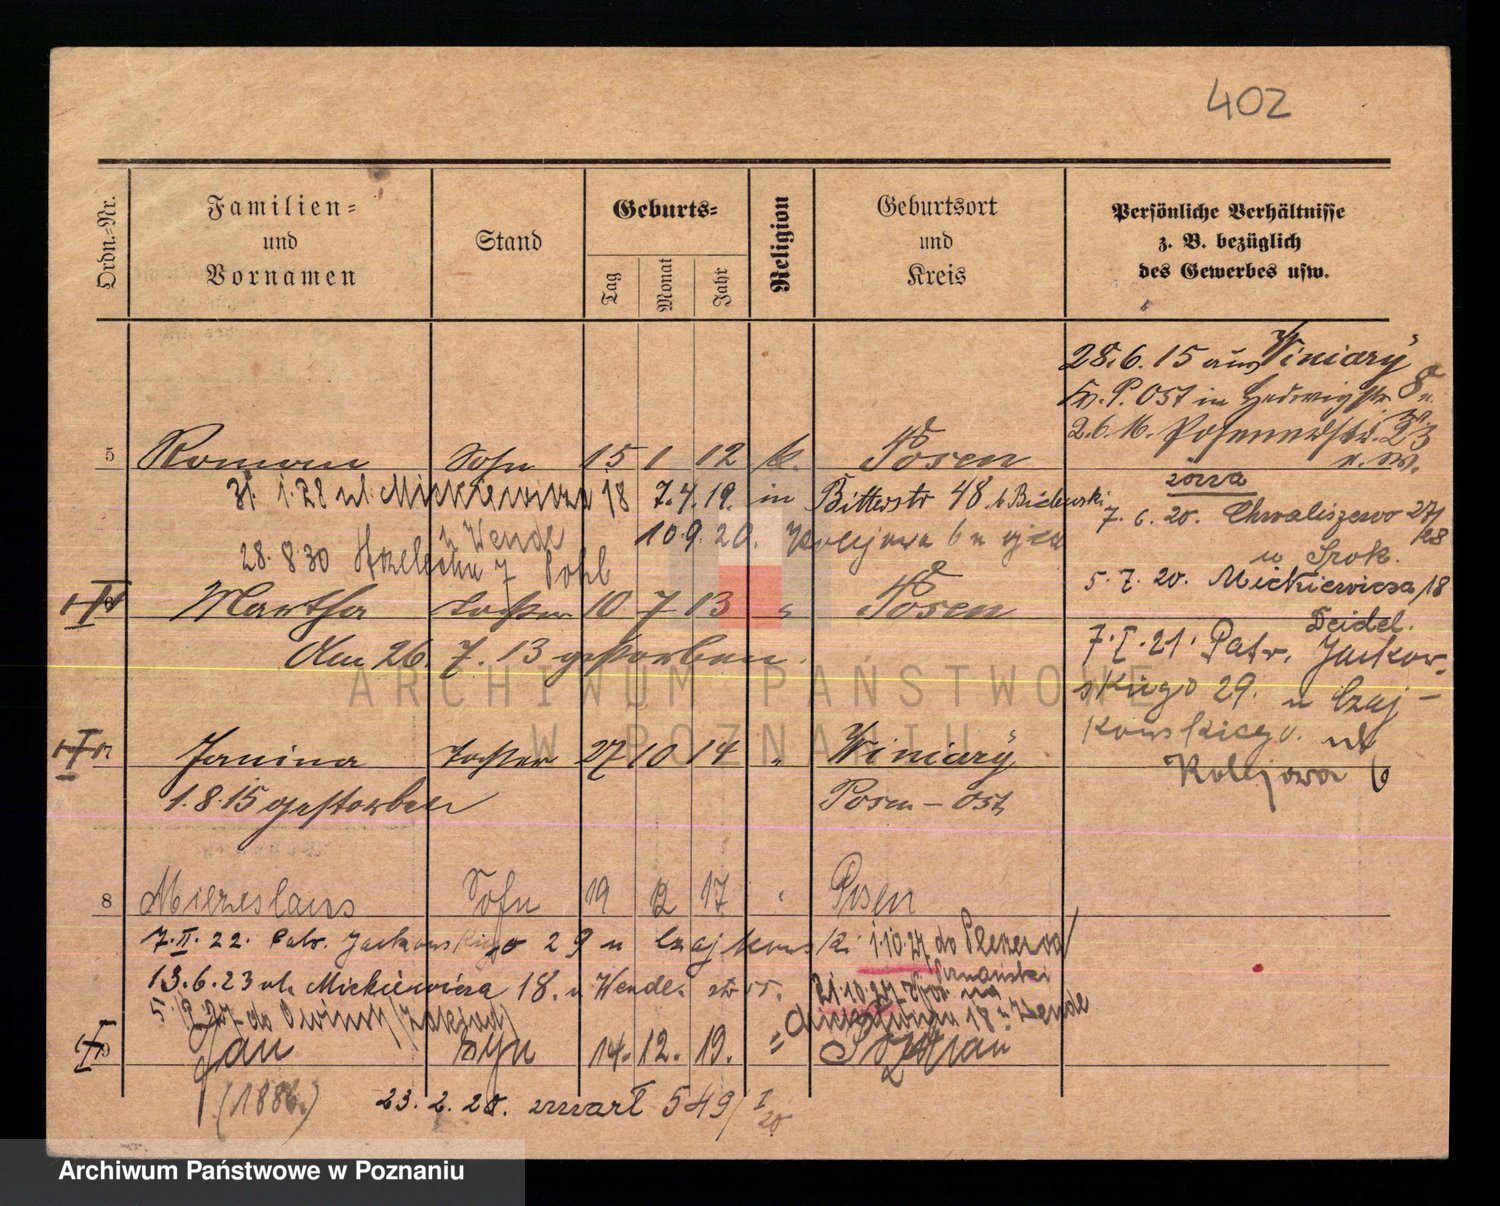 402
Ordn.-Nr.
Familien- und Vornamen
Stand
Geburts-
Tag
Monat
Jahr
Religion
Geburtsort und Kreis
Persönliche Verhältnisse
z. B. bezüglich
des Gewerbes usw.
28.6.15 aus Winiary
Kr. P. Ost in Hedwigstr 8
2.6.16. Posenerstr.
u. sw.
5 Roman Sohn 15 1 12 k. Posen
żona
31. 1.28 ul. Mickiewicza 18 7.4.19. in Bitterstr 48 b
7. 6. 20. Chwaliszewo 27/28
u Wende
10.9.20. Kollejowa 6 u ojca
u Srok.
28. 8 30 7 Pohl
5. 7. 20. Mickiewicza 18
6 Martha Tochter 10 7 13 " Posen
Deidel.
den 26. 7. 13 gestorben.
7. I. 21. Patr. Jackow-
skiego 29. u Czaj-
kowskiego. ul
7 Janina Tochter 27 10 14 " Winiary
Kollejowa 6
1.8.15 gestorben
Posen-Ost
8 Miezeslaus Sohn 19 12 17 " Posen
7. II. 22. Patr. Jackowskiego 29 u Czajkowsk. 1.10.27 do
13.6.23 ul. Mickiewicza 18. u Wende.
21.10.27
18 u Wende
do Owinsk
9 Jan Syn 14. 12. 19. " Poznan
(1886.)
23. 2. 20. zmarł 549/I 20
ARCHIWUM PAŃSTWOWE
W POZNANIU
Archiwum Państwowe w Poznaniu